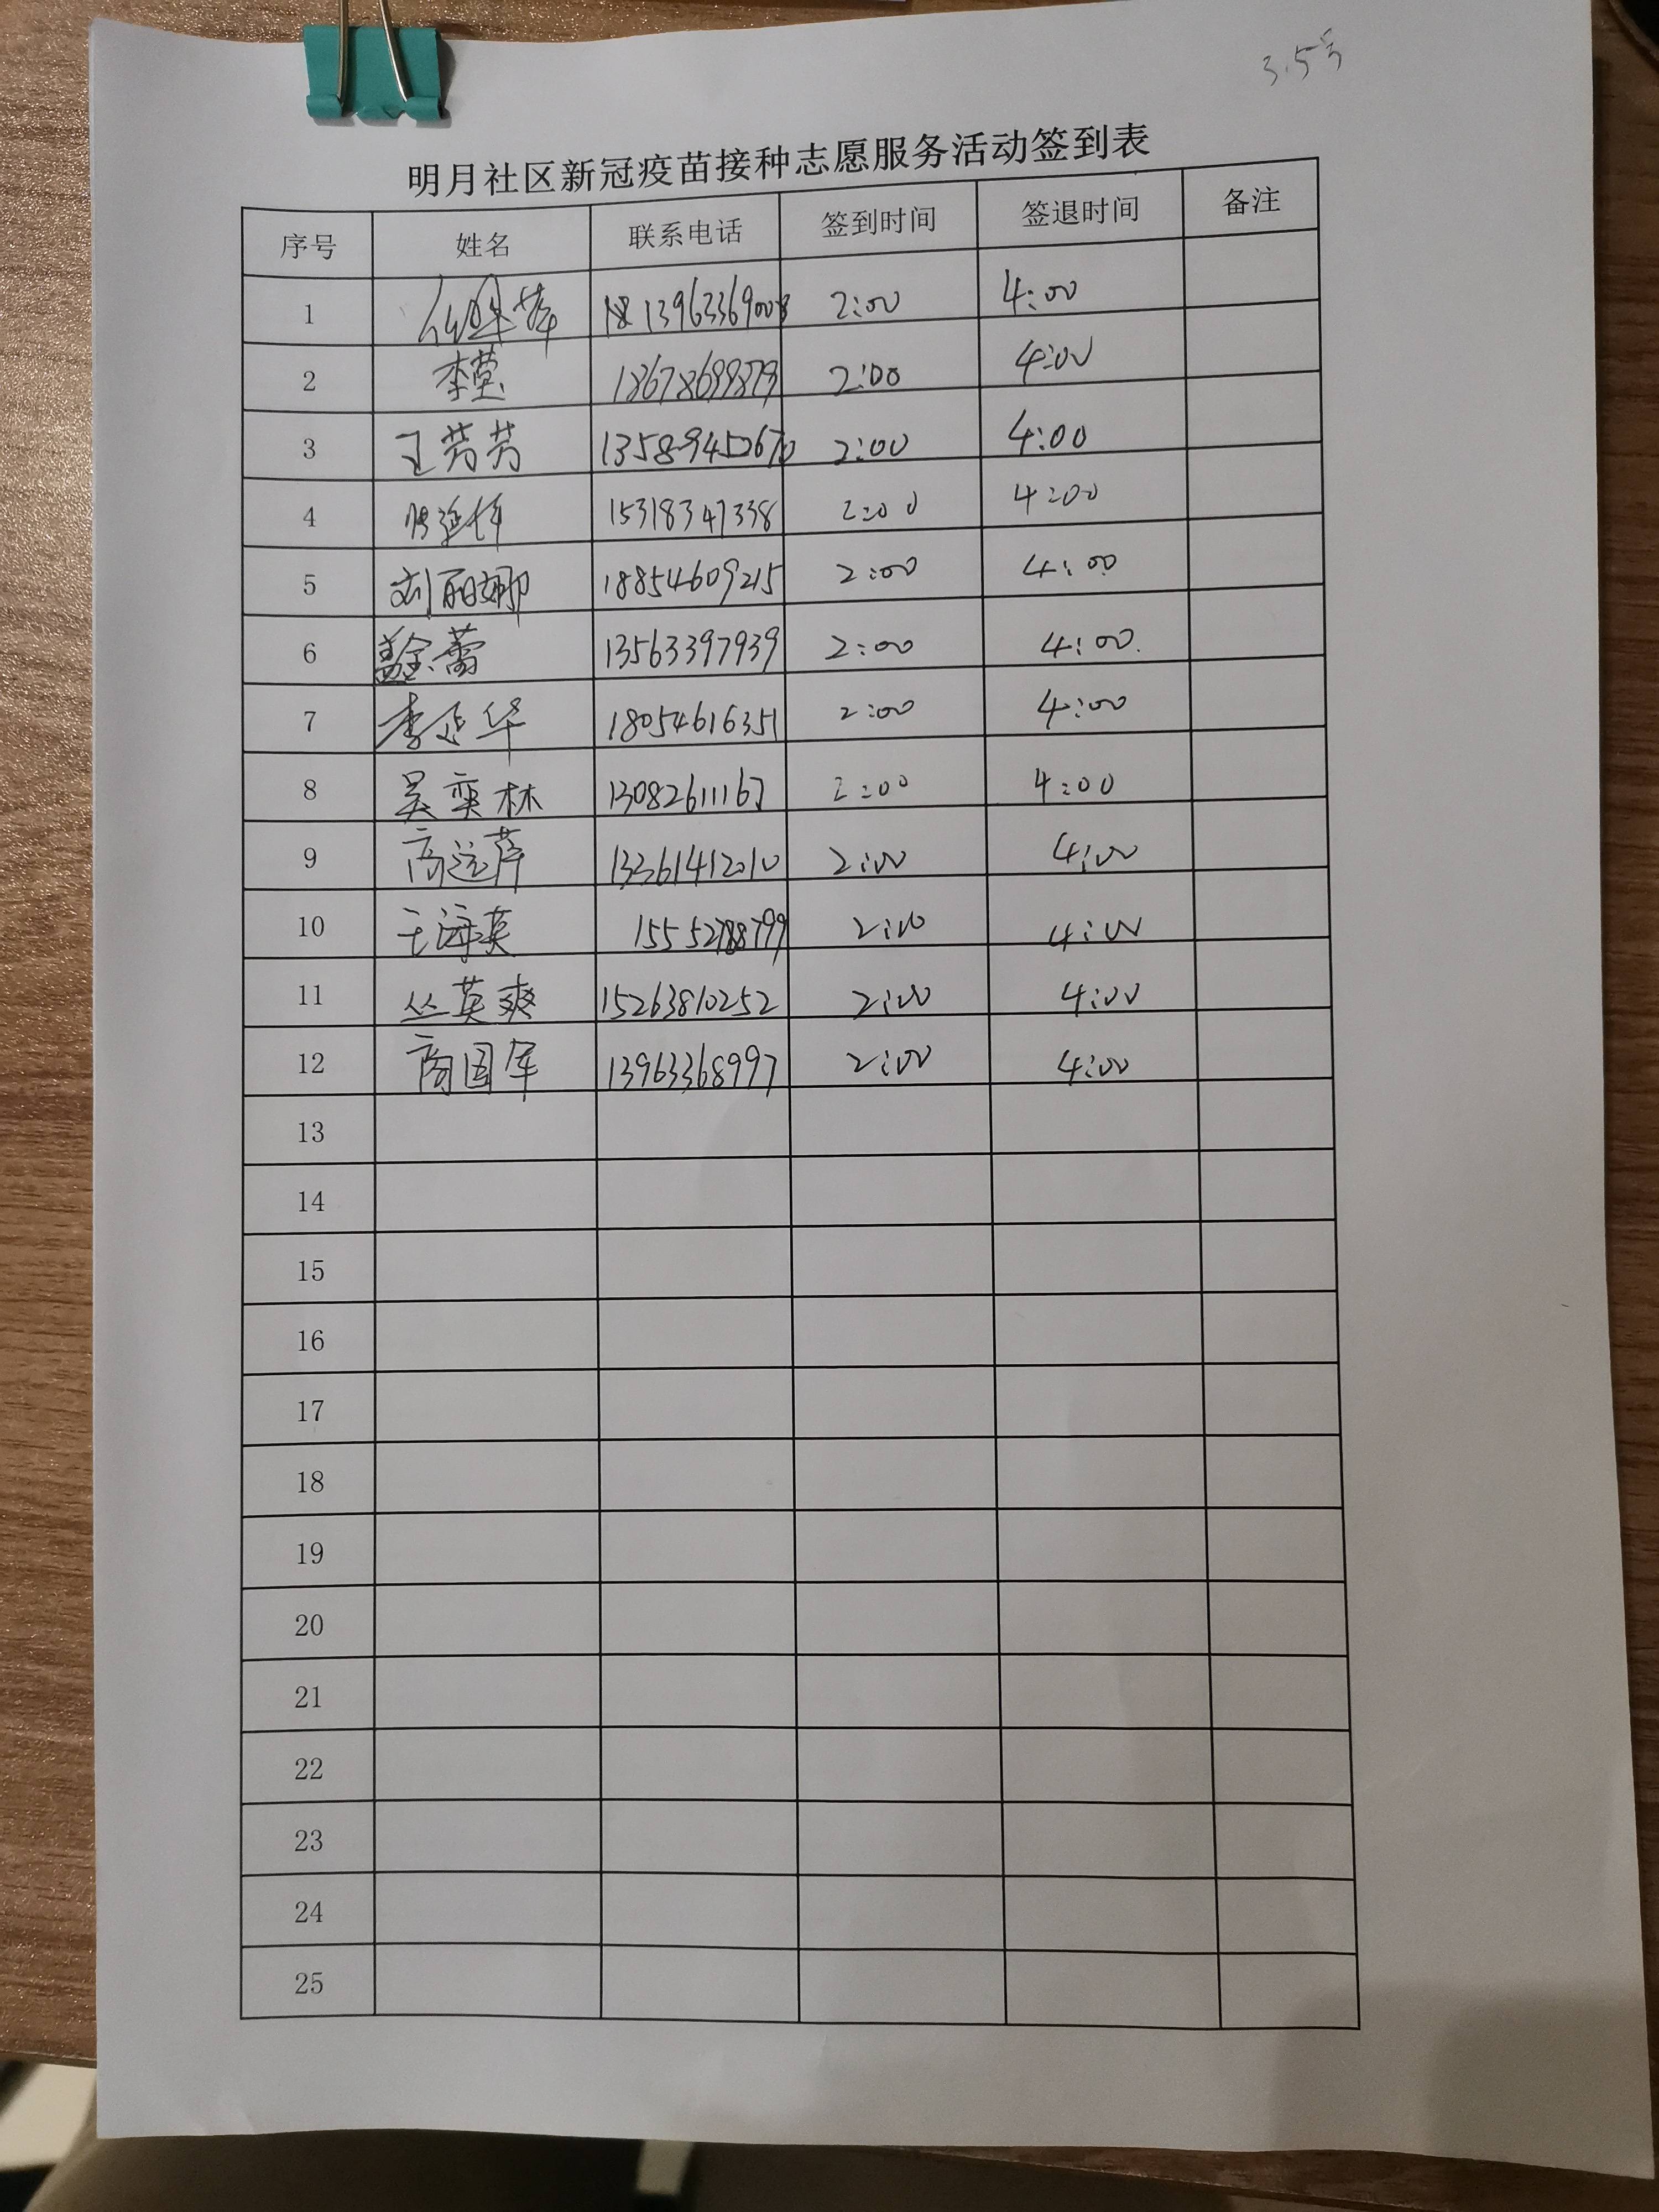 3.5号
明月社区新冠疫苗接种志愿服务活动签到表
序号 姓名 联系电话 签到时间 签退时间 备注
1 13963369008 2:00 4:00
2 李莹 18678699879 2:00 4:00
3 王芳芳 13589452670 2:00 4:00
4 15318347338 2:00 4:00
5 刘丽娜 18854609215 2:00 4:00
6 盖金蕾 13563397939 2:00 4:00
7 李延华 18054616351 2:00 4:00
8 吴奕林 13082611167 2:00 4:00
9 高运萍 13361412010 2:00 4:00
10 王海英 15552788799 2:00 4:00
11 丛英爽 15263810252 2:00 4:00
12 商国军 13963368997 2:00 4:00
13
14
15
16
17
18
19
20
21
22
23
24
25